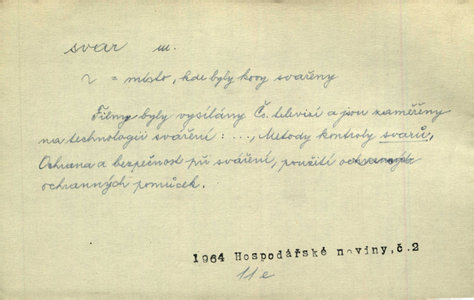 svar m.
2 = místo, kde byly kovy svařeny
Filmy byly vysílány Čs. televizí a jsou zaměřeny
na technologii sváření: ..., Metody kontroly svarů,
Ochrana a bezpečnost při sváření, použití
ochranných pomůcek.
1964 Hospodářské noviny, č.2
11e